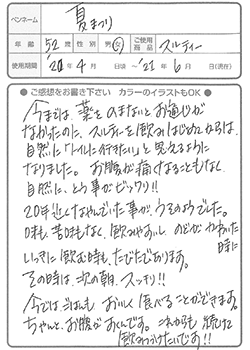 ペンネーム 夏まつり
年齢 52歳 性別 男・女 ご使用商品 スルティー
使用期間 '20年4月 日頃〜'21年6月 日(現在)
●ご感想をお書き下さい カラーのイラストもOK●
今までは、薬をのまないとお通じが
なかったのに、スルティーを飲みはじめてからは、
自然に「トイレに行きたい」と思えるように
なりました。お腹が痛くなることもなく、
自然に、という事がビックリ!!
20年近くなやんでいた事が、うそのようでした。
味も、苦味もなく、飲みやすいし、のどがかわいた時に
いっきに飲む時も、たびたびあります。
その時は、次の朝、スッキリ!!
今では、ごはんも、おいしく食べることができます。
ちゃんと、お腹がすくんです。これからも続けて
飲みつづけたいです!!